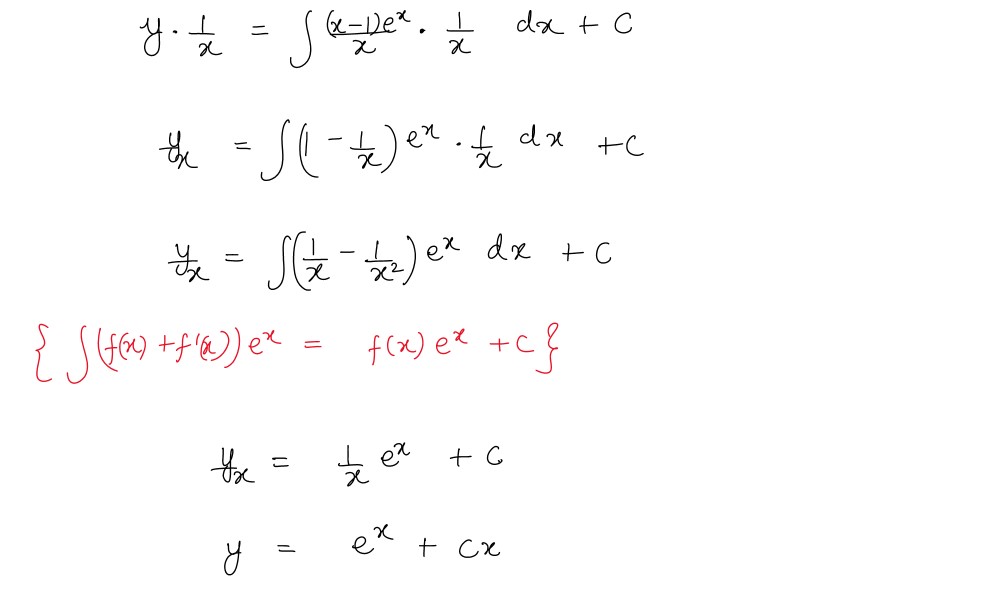 y · 1/x = ∫ (x-1)eˣ/x · 1/x dx + C
y/x = ∫(1 - 1/x) eˣ · 1/x dx + C
y/x = ∫(1/x - 1/x²) eˣ dx + C
{ ∫(f(x) + f'(x)) eˣ = f(x) eˣ + C }
y/x = 1/x eˣ + C
y = eˣ + Cx